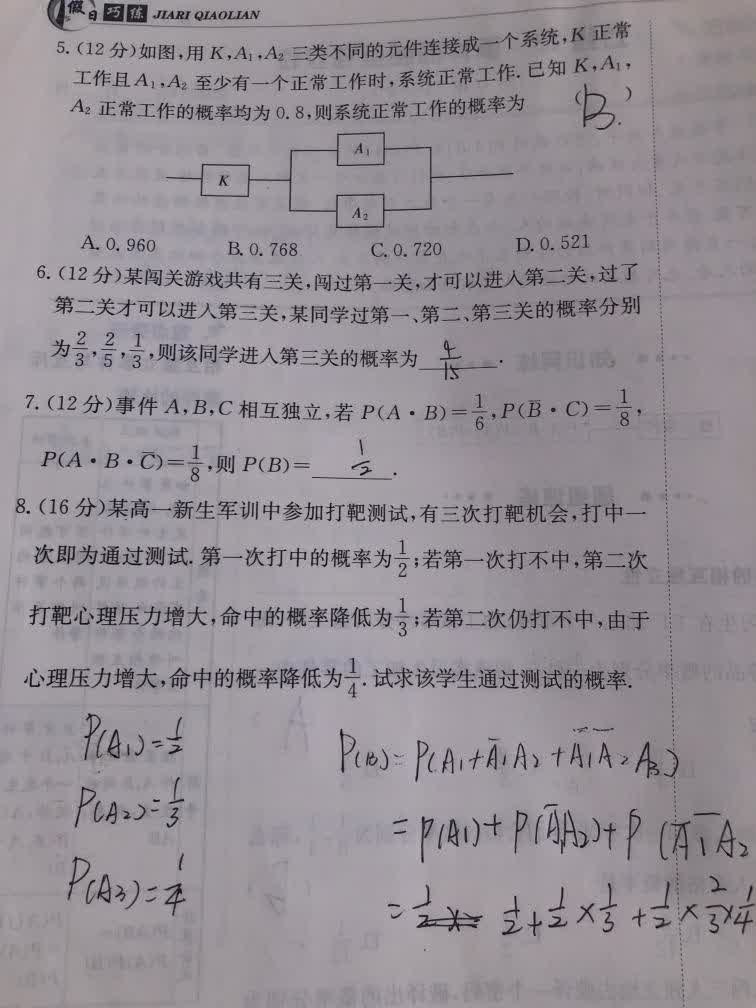 假日巧练 JIARI QIAOLIAN
5. (12分)如图,用 K, A₁, A₂ 三类不同的元件连接成一个系统, K 正常
工作且 A₁, A₂ 至少有一个正常工作时,系统正常工作. 已知 K, A₁,
A₂ 正常工作的概率均为 0.8,则系统正常工作的概率为 ( B. )
A₁
K
A₂
A. 0.960 B. 0.768 C. 0.720 D. 0.521
6. (12分)某闯关游戏共有三关,闯过第一关,才可以进入第二关,过了
第二关才可以进入第三关,某同学过第一、第二、第三关的概率分别
为 2/3, 2/5, 1/3,则该同学进入第三关的概率为 4/15 .
7. (12分)事件 A, B, C 相互独立,若 P(A·B)=1/6, P(B̄·C)=1/8,
P(A·B·C̄)=1/8,则 P(B)= 1/2 .
8. (16分)某高一新生军训中参加打靶测试,有三次打靶机会,打中一
次即为通过测试. 第一次打中的概率为 1/2;若第一次打不中,第二次
打靶心理压力增大,命中的概率降低为 1/3;若第二次仍打不中,由于
心理压力增大,命中的概率降低为 1/4. 试求该学生通过测试的概率.
P(A₁)=1/2
P(A₂)=1/3
P(A₃)=1/4
P(B)=P(A₁+Ā₁A₂+Ā₁Ā₂A₃)
=P(A₁)+P(Ā₁A₂)+P(Ā₁Ā₂
=1/2 1/2+1/2×1/3+1/2×2/3×1/4